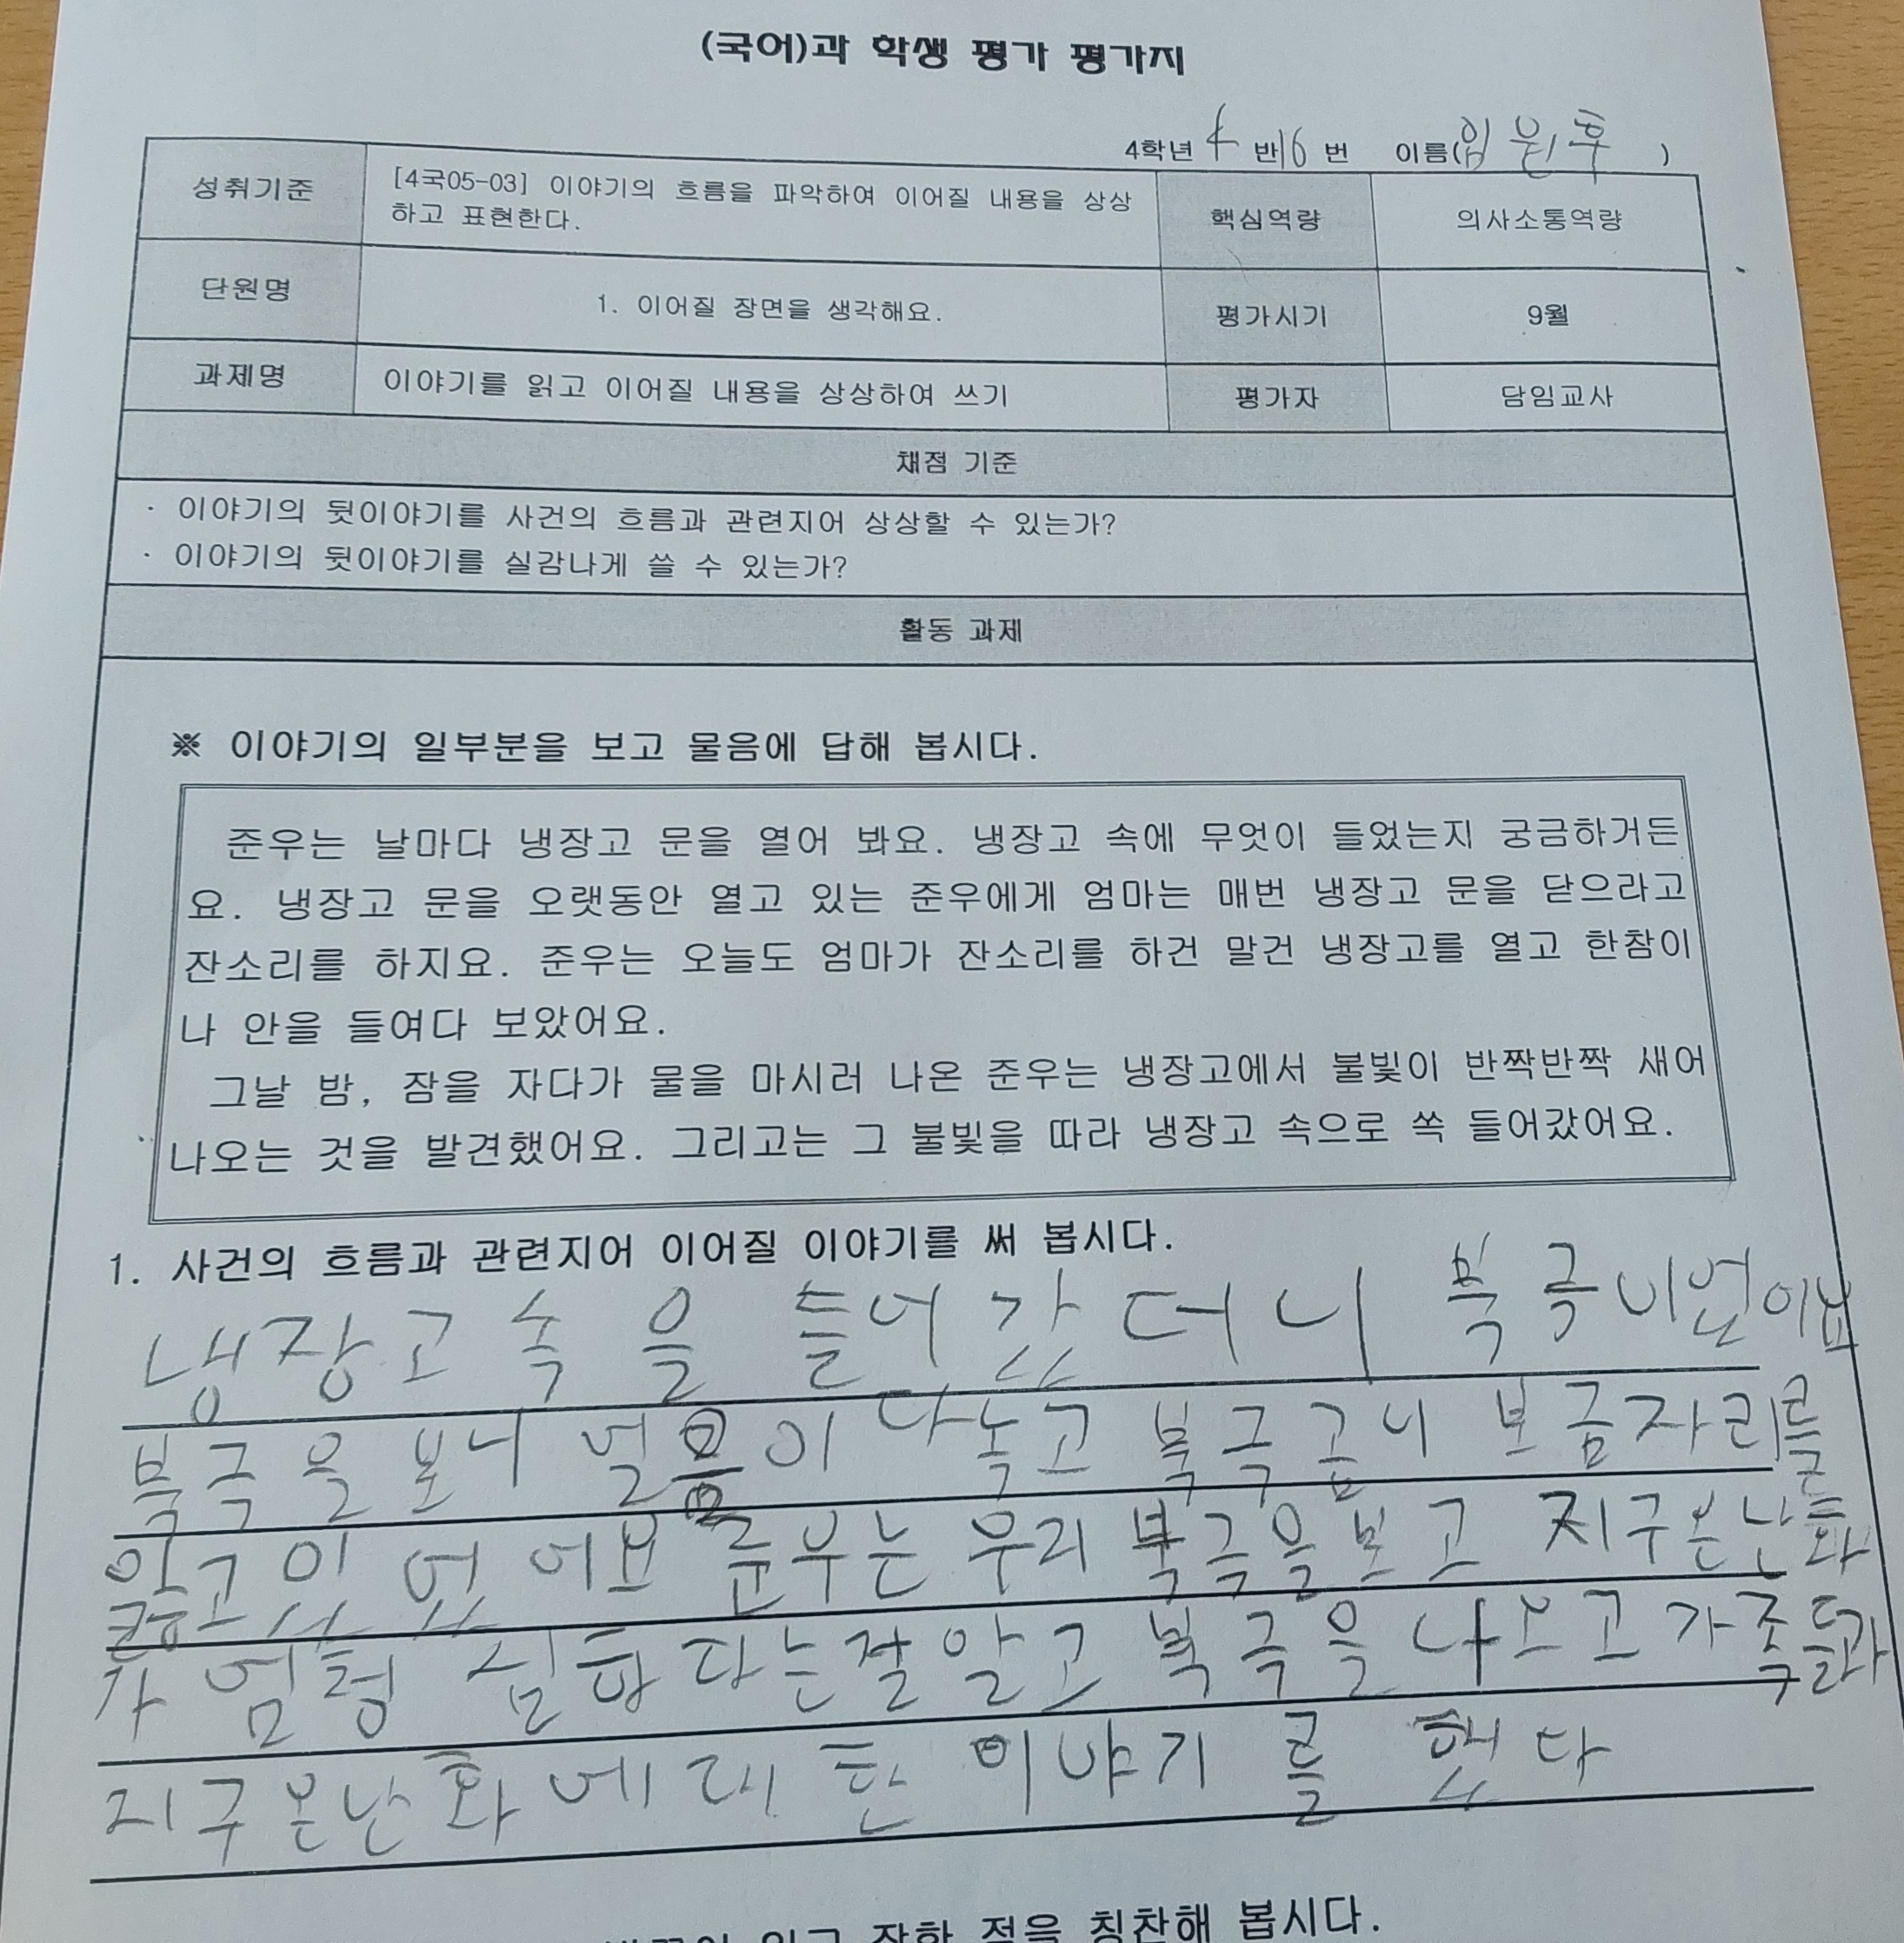 (국어)과 학생 평가 평가지
4학년 4 반 16 번 이름(임윤후)
성취기준
[4국05-03] 이야기의 흐름을 파악하여 이어질 내용을 상상
하고 표현한다.
핵심역량
의사소통역량
단원명
1. 이어질 장면을 생각해요.
평가시기
9월
과제명
이야기를 읽고 이어질 내용을 상상하여 쓰기
평가자
담임교사
채점 기준
· 이야기의 뒷이야기를 사건의 흐름과 관련지어 상상할 수 있는가?
· 이야기의 뒷이야기를 실감나게 쓸 수 있는가?
활동 과제
※ 이야기의 일부분을 보고 물음에 답해 봅시다.
준우는 날마다 냉장고 문을 열어 봐요. 냉장고 속에 무엇이 들었는지 궁금하거든
요. 냉장고 문을 오랫동안 열고 있는 준우에게 엄마는 매번 냉장고 문을 닫으라고
잔소리를 하지요. 준우는 오늘도 엄마가 잔소리를 하건 말건 냉장고를 열고 한참이
나 안을 들여다 보았어요.
그날 밤, 잠을 자다가 물을 마시러 나온 준우는 냉장고에서 불빛이 반짝반짝 새어
나오는 것을 발견했어요. 그리고는 그 불빛을 따라 냉장고 속으로 쏙 들어갔어요.
1. 사건의 흐름과 관련지어 이어질 이야기를 써 봅시다.
냉장고 속을 들어갔더니 북극
북극을 보니 얼음이 다 녹고 북극곰이 보금자리를
잃고 있었어요 준우는 우리 북극을 보고 지구온난화
가 엄청 심하다는 알고 북극을 나오고 가족들과
지구온난화에 대한 이야기를 했다
잘한 점을 칭찬해 봅시다.